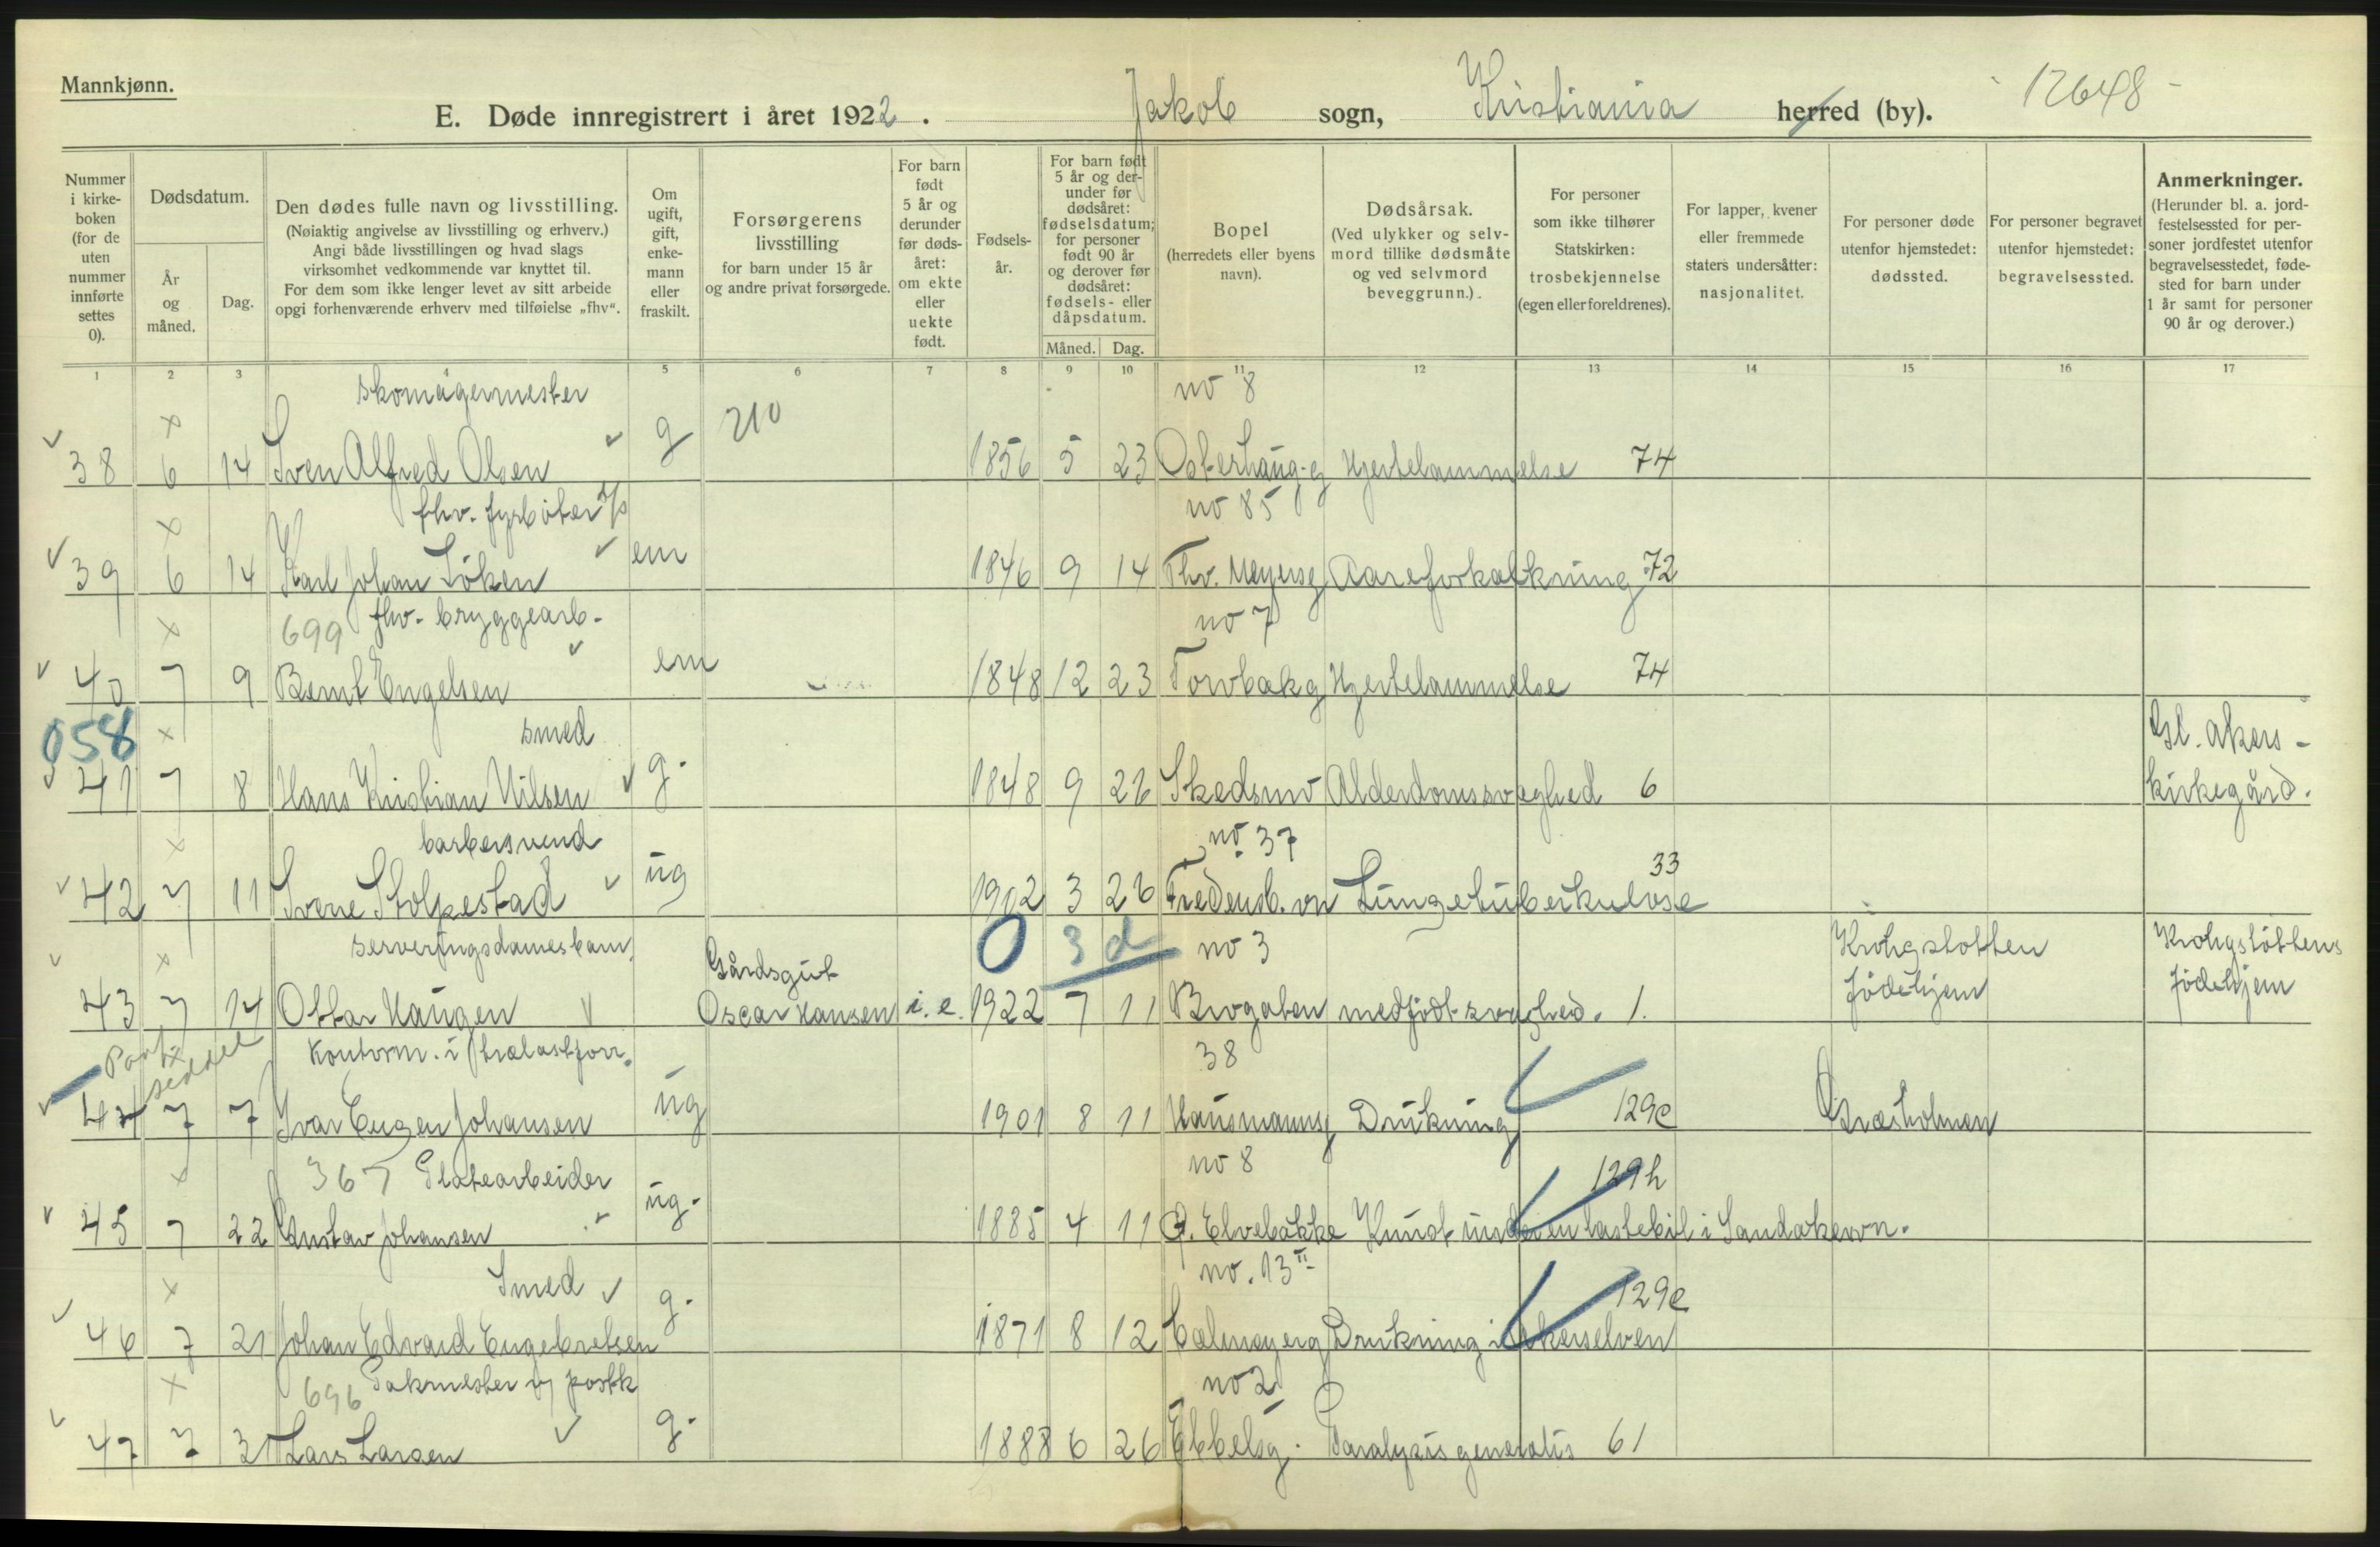 Mannkjønn.
E. Døde innregistrert i året 1922. Jakob sogn, Kristiania herred (by). 12648
Nummer i kirkeboken (for de uten nummer innførte settes 0).
Dødsdatum.
År og måned.
Dag.
Den dødes fulle navn og livsstilling.
(Nøiaktig angivelse av livsstilling og erhverv.)
Angi både livsstillingen og hvad slags
virksomhet vedkommende var knyttet til.
For dem som ikke lenger levet av sitt arbeide
opgi forhenværende erhverv med tilføielse „fhv“.
Om ugift, gift, enkemann eller fraskilt.
Forsørgerens livsstilling
for barn under 15 år
og andre privat forsørgede.
For barn født 5 år og derunder før dødsåret: om ekte eller uekte født.
Fødselsår.
For barn født 5 år og derunder før dødsåret: fødselsdatum; for personer født 90 år og derover før dødsåret: fødsels- eller dåpsdatum.
Måned. Dag.
Bopel
(herredets eller byens navn).
Dødsårsak.
(Ved ulykker og selvmord tillike dødsmåte og ved selvmord beveggrunn.).
For personer som ikke tilhører Statskirken: trosbekjennelse (egen eller foreldrenes).
For lapper, kvener eller fremmede staters undersåtter: nasjonalitet.
For personer døde utenfor hjemstedet: dødssted.
For personer begravet utenfor hjemstedet: begravelsessted.
Anmerkninger.
(Herunder bl. a. jordfestelsessted for personer jordfestet utenfor begravelsesstedet, fødested for barn under 1 år samt for personer 90 år og derover.)
1 2 3 4 5 6 7 8 9 10 11 12 13 14 15 16 17
skomagermester no 8
38 6 14 Sven Alfred Olsen g 210 1856 5 23 Osterhaug-g Hjertelammelse 74
fhv. fyrböter no 85
39 6 14 Karl Johan Löken em 1846 9 14 Thv. Meyersg Aareforkalkning 72
699 fhv. bryggearb. no 7
40 7 9 Bernt Engelsen em 1848 12 23 Torvbakg Hjertelammelse 74
058 smed Gl. Akers-
41 7 8 Hans Kristian Nilsen g. 1848 9 26 Skedsmo Alderdomssvaghed 6 kirkegård.
barbersvend no. 37
42 7 11 Sverre Stolpestad ug 1902 3 26 Fredensb. vn Lungetuberkulose 33
serveringsdamesbarn Gårdsgut 0 3 d no 3 Krohgstotten Krohgstöttens
43 7 14 Ottar Haugen Oscar Hansen i. e. 1922 7 11 Brogaten medfödt svaghed. 1. födehjem födehjem
seddel
Kontorm. i trælastforr. 38
44 7 7 Ivar Eugen Johansen ug 1901 8 11 Hausmannsg Drukning 129e Græsholmen
367 Platearbeider no 8 129h
45 7 22 Gustav Johansen ug. 1885 4 11 Ø. Elvebakke Knust under en lastebil i Sandakervn.
Smed no. 13 II 129e
46 7 21 Johan Edvard Engebretsen g. 1871 8 12 Calmeyerg Drukning i Akerselven
696 Pakmester v postk no 2
47 7 31 Lars Larsen g. 1888 6 26 Ebbelsg. Paralysis generalis 61